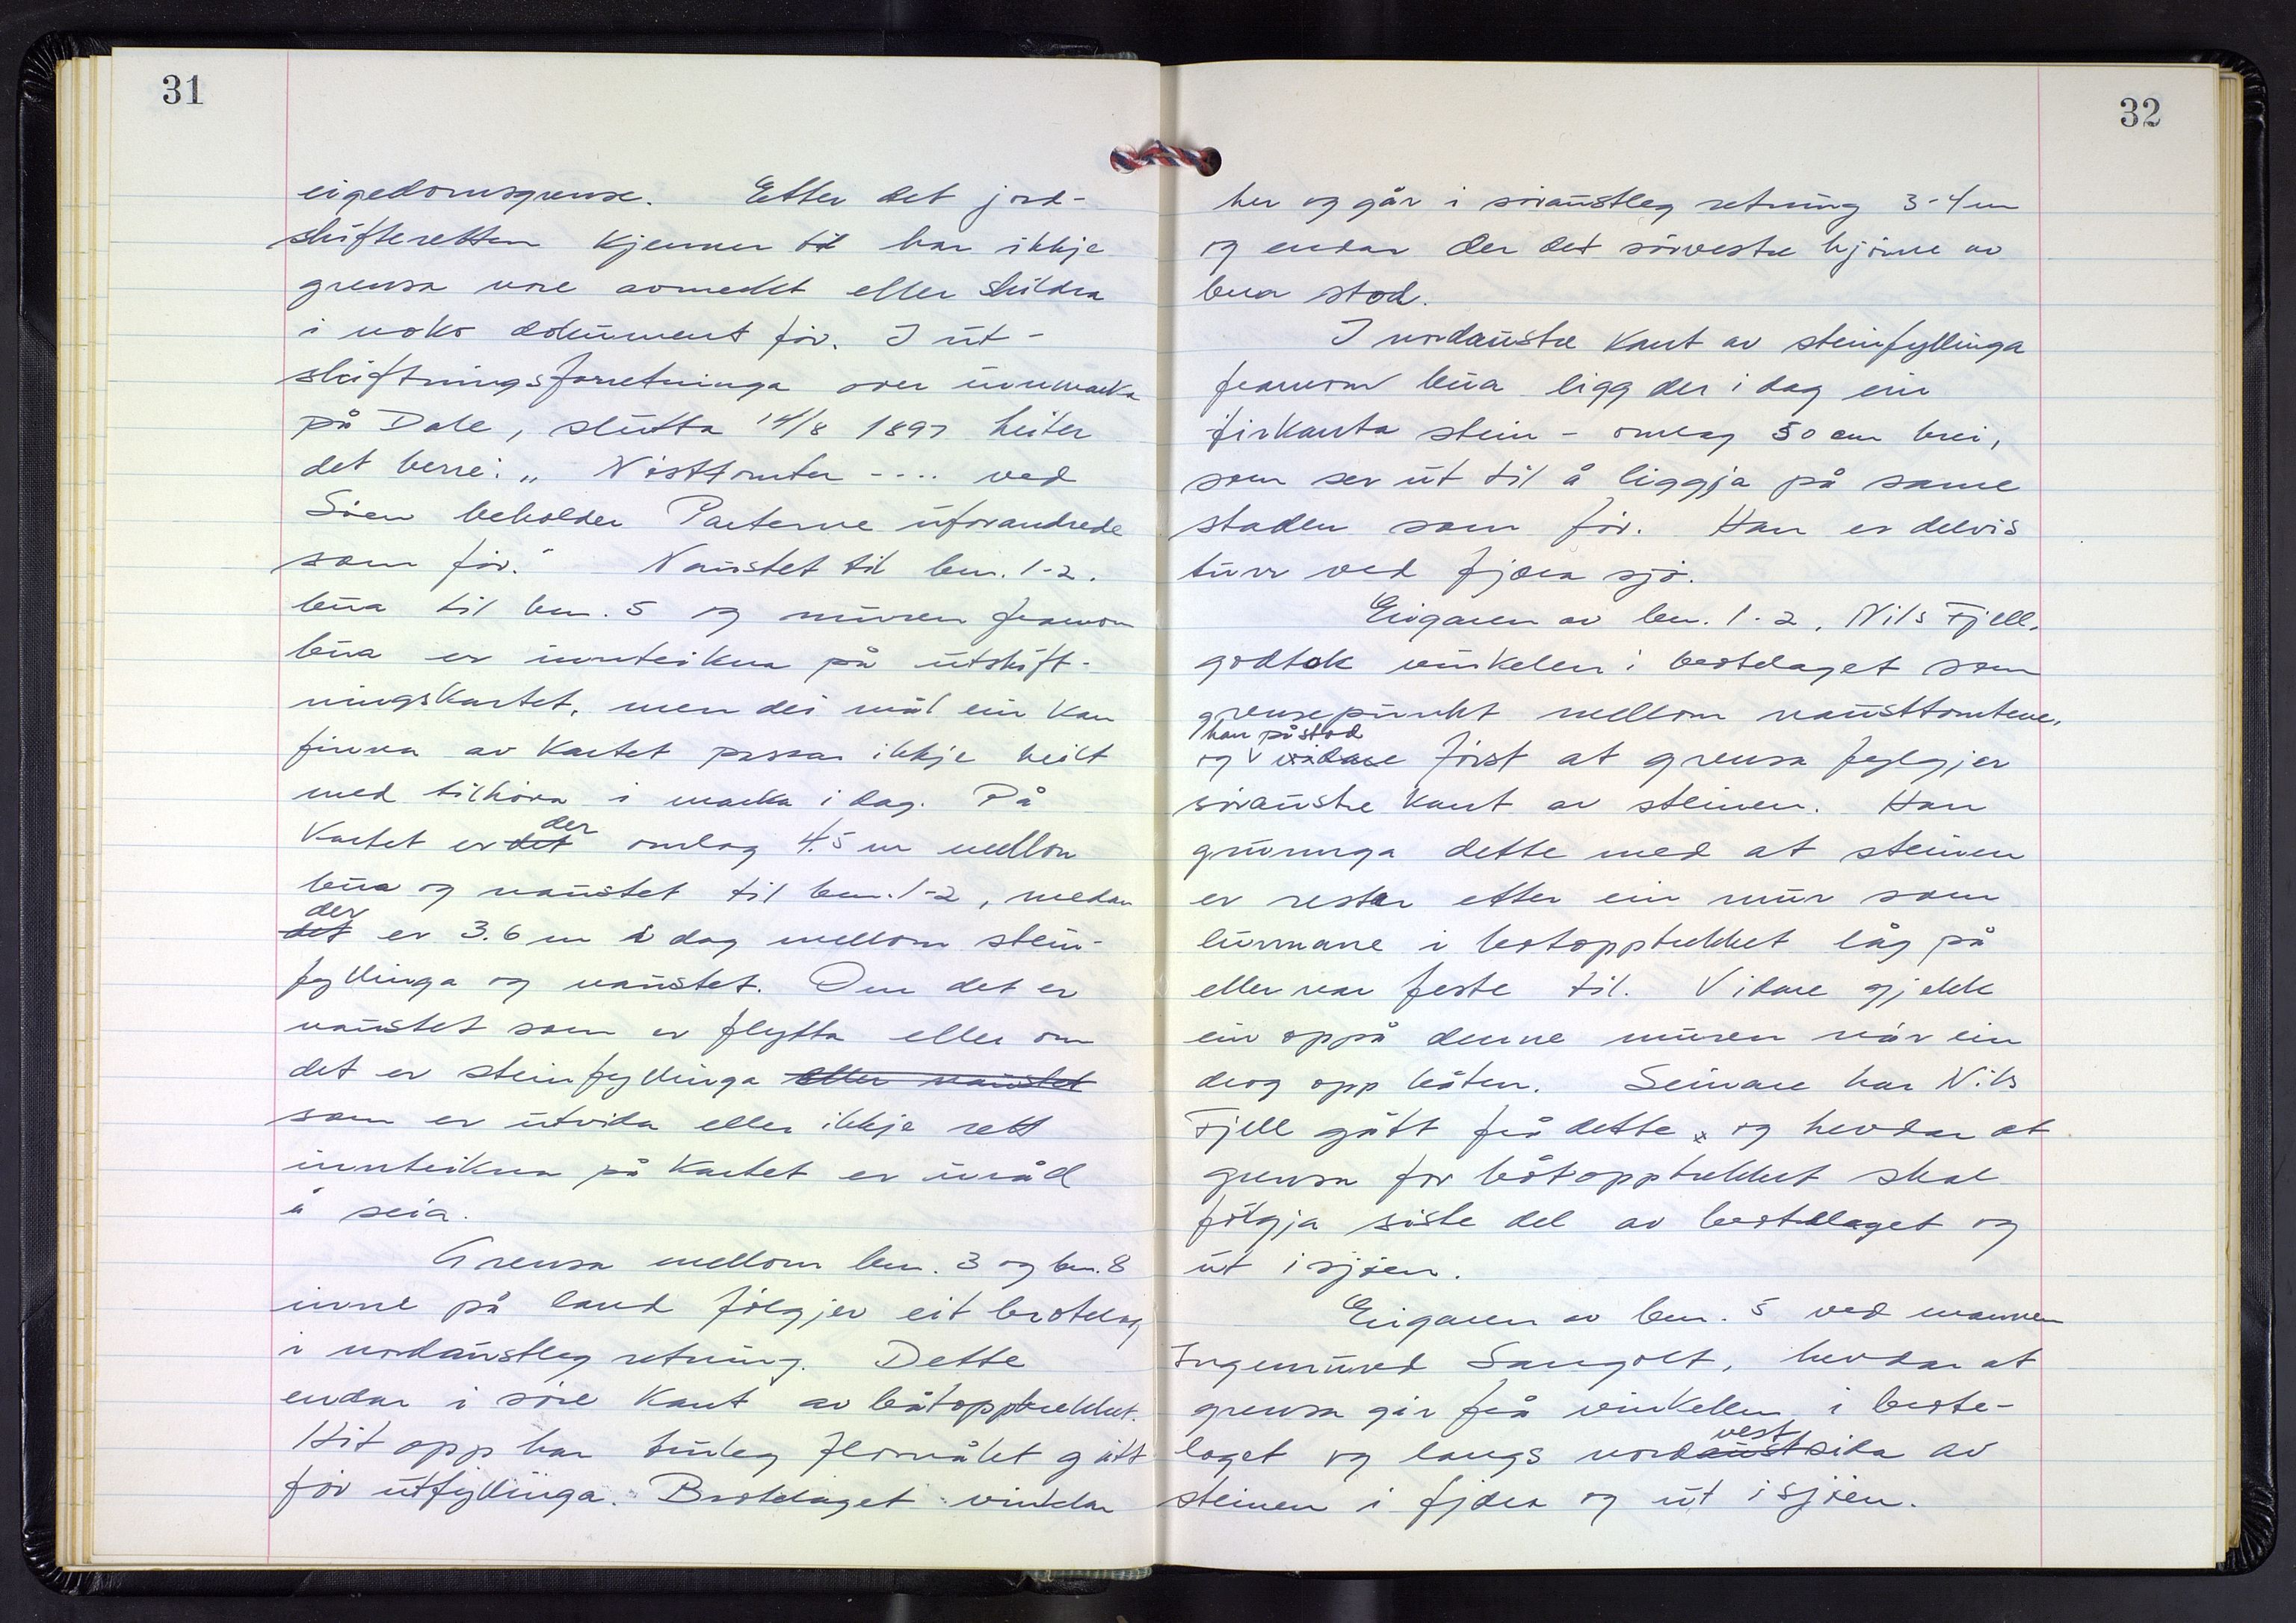 31
eigedomsgrense. Etter det jord-
skifteretten kjenner til har ikkje
grensa vore avmerkt eller skildra
i noko dokument før. I ut-
skiftningsforretninga over innmarka
på Dale, slutta 14/8 1897 heiter
det berre: „ Nösttomter - ... ved
Söen beholder Parterne uforandrede
som för." Naustet til bnr. 1-2.
bua til bnr. 5 og muren framom
bua er innteikna på utskift-
ningskartet, men dei mål ein kan
finna av kartet passar ikkje heilt
med tilhöva i marka i dag. På
kartet er det der omlag 4.5 m mellom
bua og naustet til bnr. 1-2, medan
det der er 3.6 m i dag mellom stein-
fyllinga og naustet. Om det er
naustet som er flytta eller om
det er steinfyllinga eller naustet
som er utvida eller ikkje rett
innteikna på kartet er uråd
å seia.
Grensa mellom bnr. 3 og bnr. 8
inne på land fölgjer eit brotelag
i nordaustleg retning. Dette
endar i söre kant av båtopptrekket.
Hit opp har truleg flomålet gått
för utfyllinga. Brotelaget vinklar
32
her og går i söraustleg retning 3-4 m
og endar der det sörvestre hjörne av
bua stod.
I nordaustre kant av steinfyllinga
framom bua ligg der i dag ein
firkanta stein - omlag 50 cm brei,
som ser ut til å liggja på same
staden som för. Han er delvis
turr ved fjöra sjö.
Eigaren av bnr. 1-2, Nils Fjell,
godtok vinkelen i brotelaget som
grensepunkt mellom nausttomtene,
og han påstod vidare först at grensa fylgjer
söraustre kant av steinen. Han
grunnga dette med at steinen
er restar etter ein mur som
lunnane i båtopptrekket låg på
eller var feste til. Vidare gjekk
ein oppå denne muren når ein
drog opp båten. Seinare har Nils
Fjell gått frå dette og hevdar at
grensa for båtopptrekket skal
fölgja siste del av brotelaget og
ut i sjöen.
Eigaren av bnr. 5 ved mannen
Ingemund Sangolt, hevdar at
grensa går frå vinkellen i brote-
laget og langs nordaust vest sida av
steinen i fjöra og ut i sjöen.